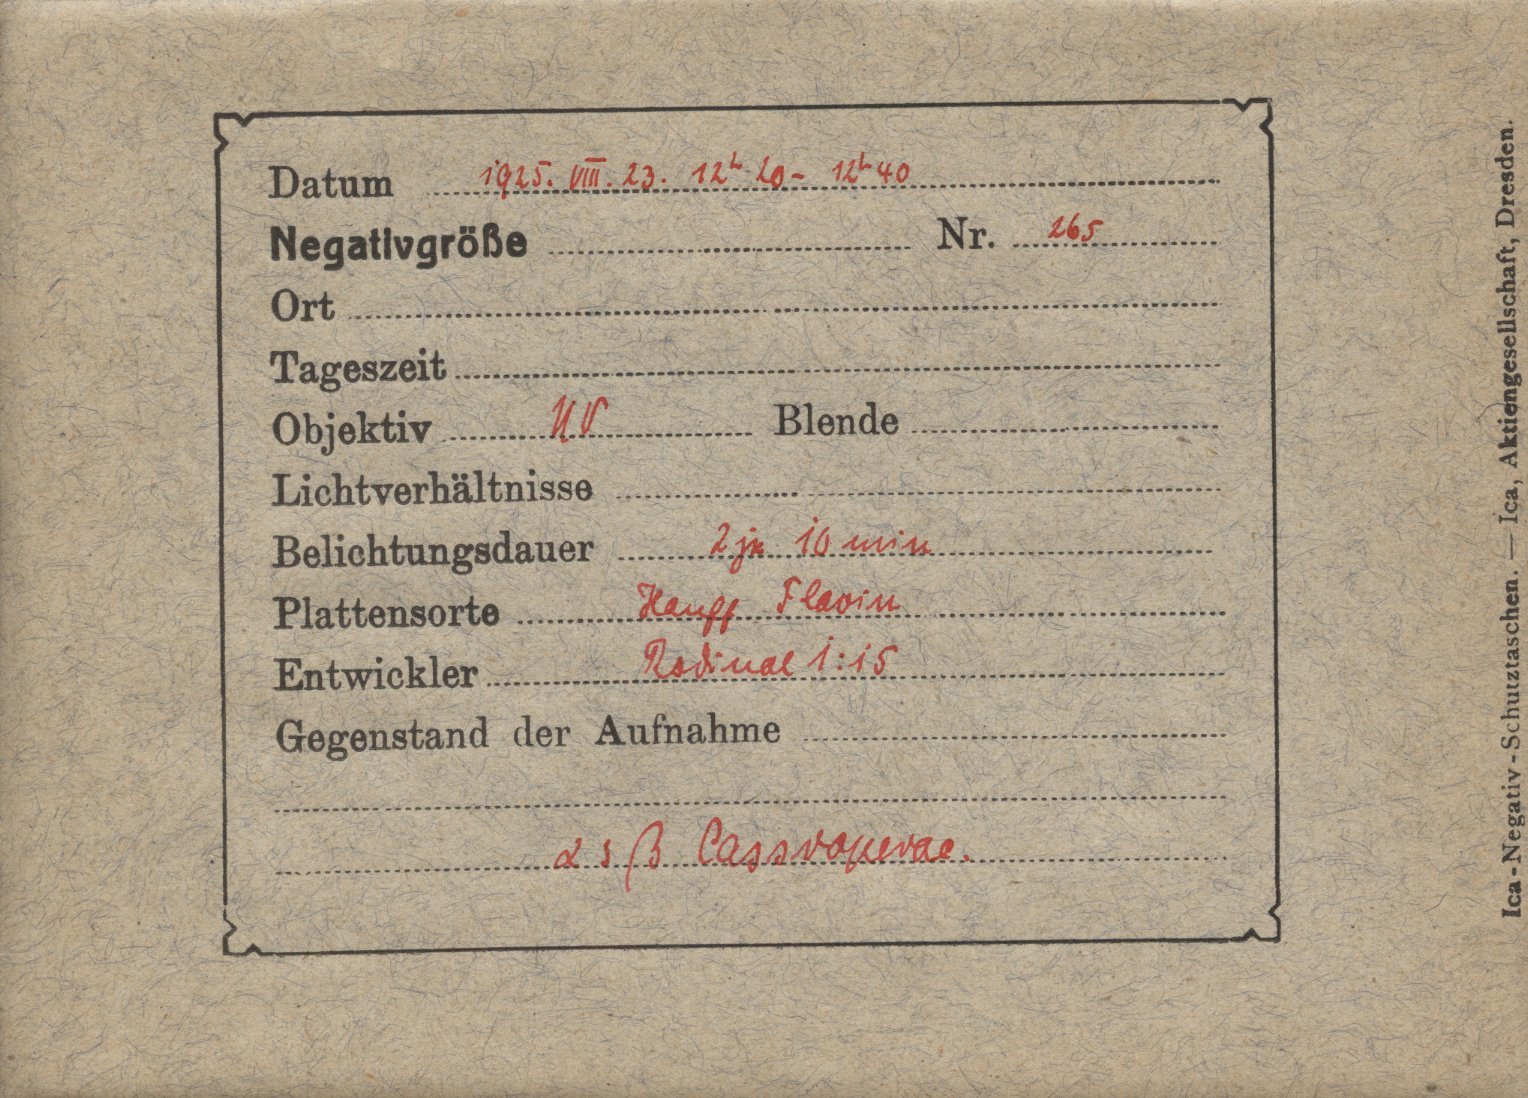 Datum 1925. VIII. 23. 12h 20 - 12h 40
Negativgröße Nr. 265
Ort
Tageszeit
Objektiv UV Blende
Lichtverhältnisse
Belichtungsdauer 2 je 10 min
Plattensorte Hauff Flavin
Entwickler Rodinal 1:15
Gegenstand der Aufnahme
α β Cassiopeiae.
Ica-Negativ-Schutztaschen. — Ica, Aktiengesellschaft, Dresden.